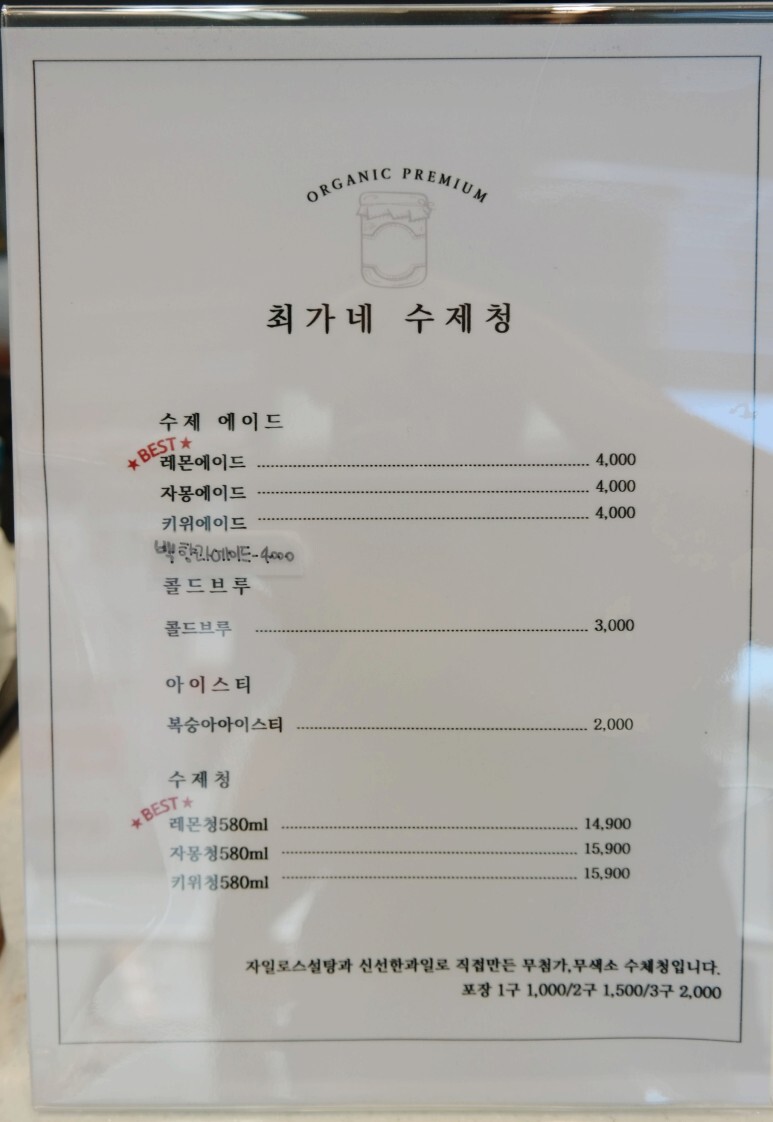 ORGANIC PREMIUM
최가네 수제청
수제 에이드
★BEST★
레몬에이드 4,000
자몽에이드 4,000
키위에이드 4,000
백향과에이드-4000
콜드브루
콜드브루 3,000
아이스티
복숭아아이스티 2,000
수제청
★BEST★
레몬청580ml 14,900
자몽청580ml 15,900
키위청580ml 15,900
자일로스설탕과 신선한과일로 직접만든 무첨가,무색소 수제청입니다.
포장 1구 1,000/2구 1,500/3구 2,000